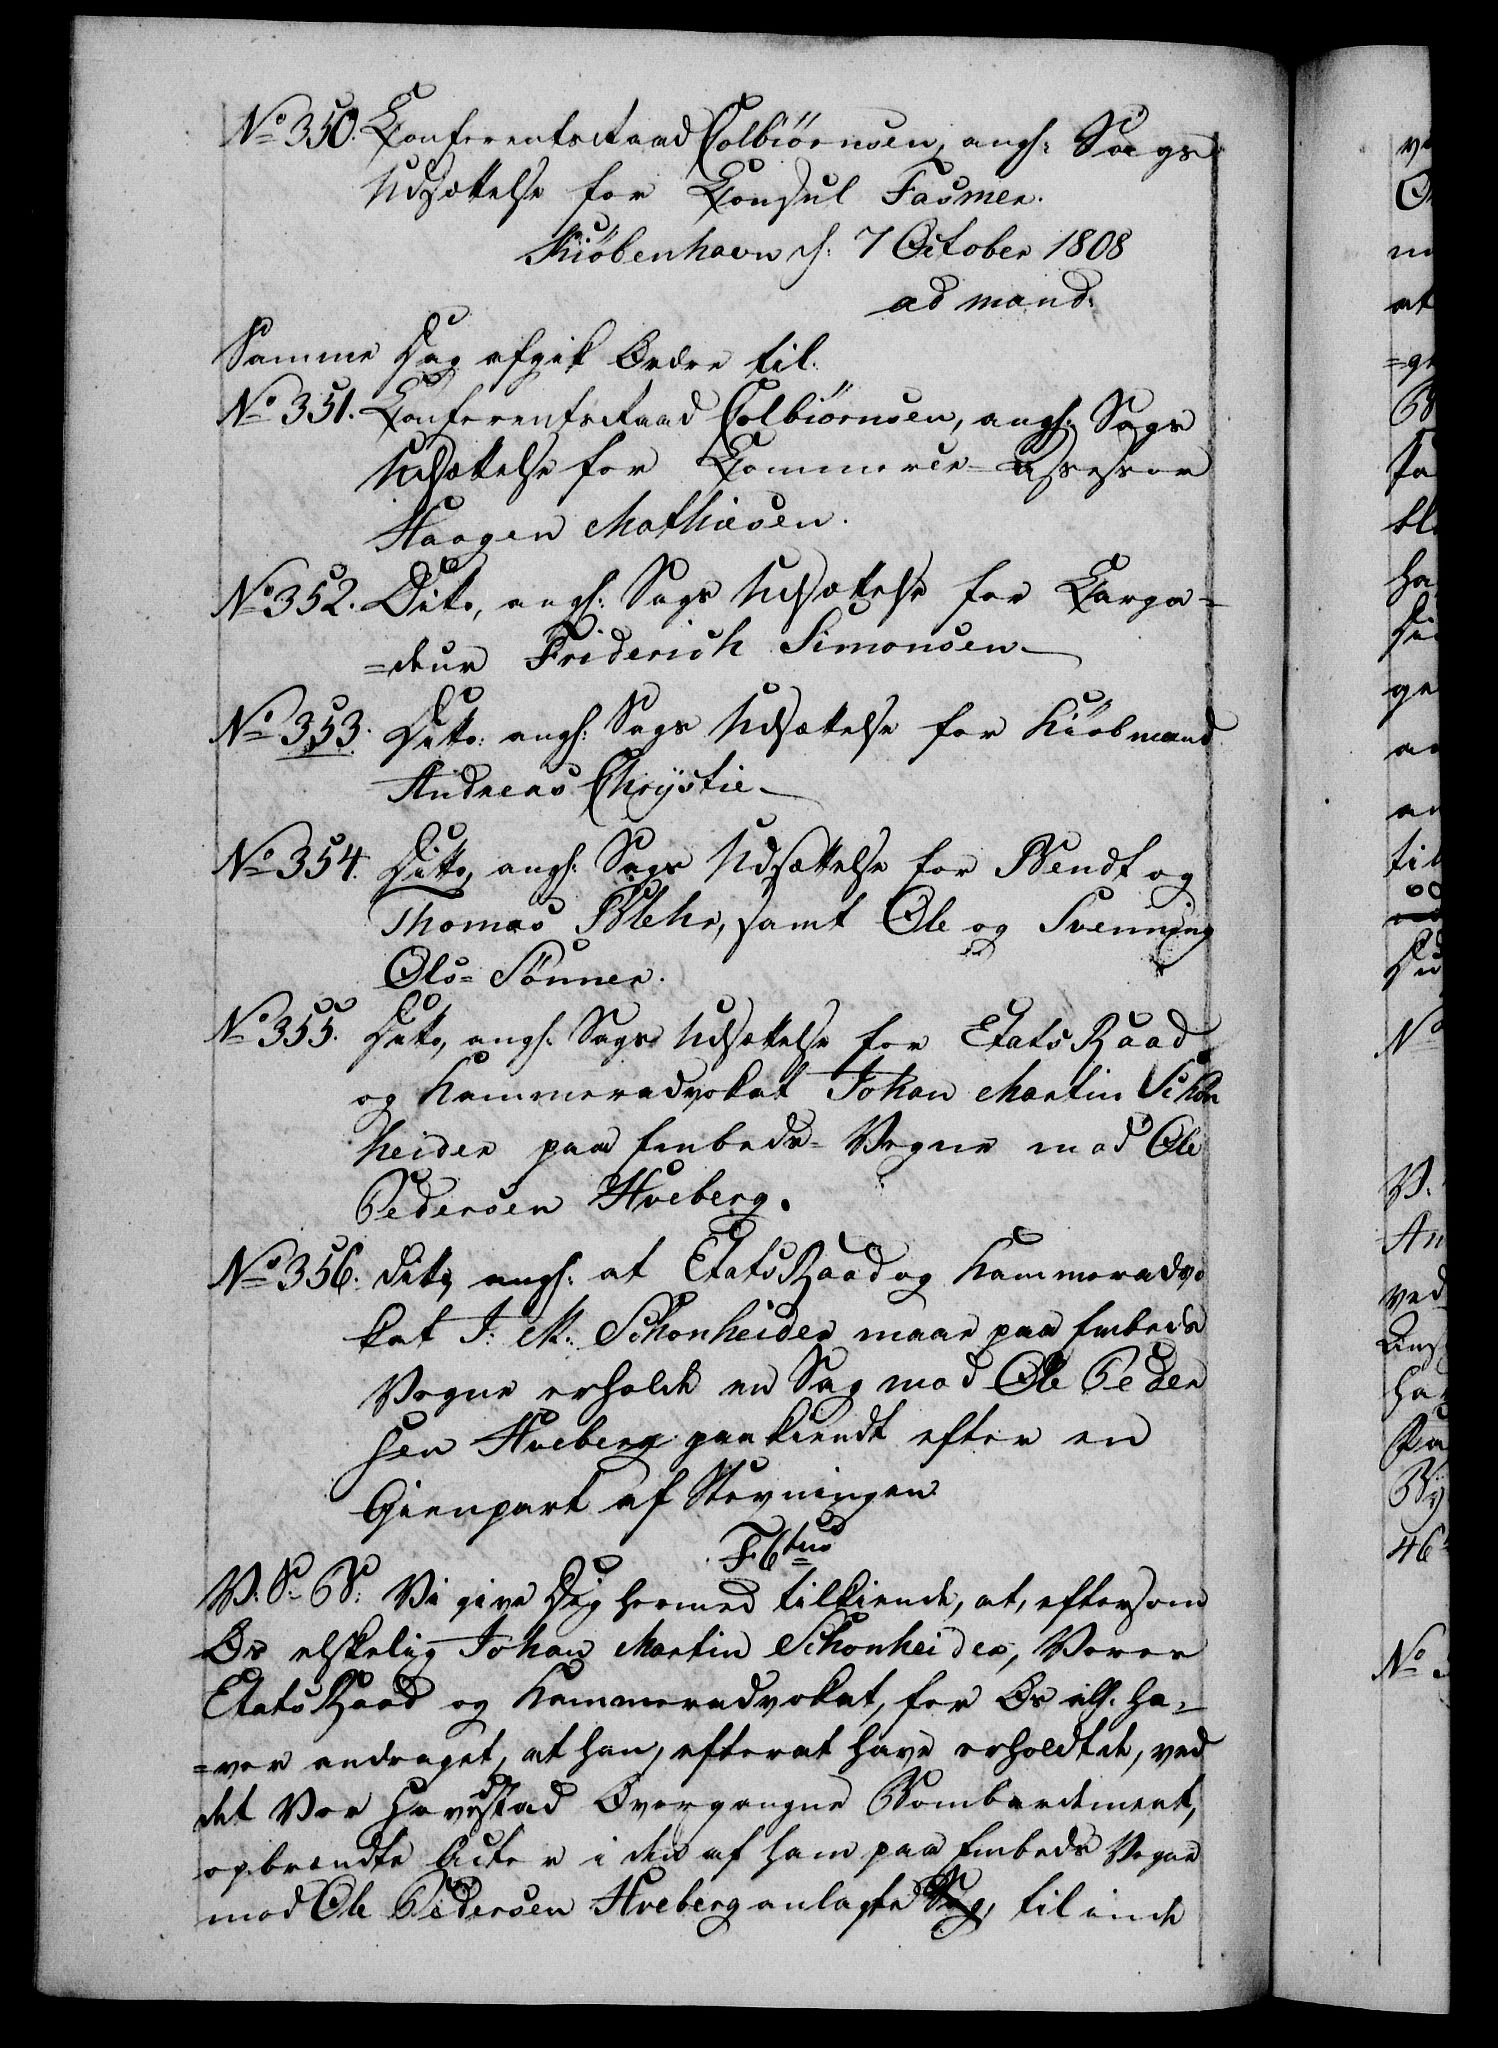 No 350. Konferentsraad Colbiörnsen, angh: Sags
Udsættelse for Konsul Fasmer.
Kiöbenhavn d: 7 October 1808
ad mand:
Samme Dag afgik Ordre til:
No 351. Konferentsraad Colbiörnsen, angh: Sags
Udsættelse for Kommerce-Assessor
Haagen Mathiesen.
No 352. Dito, angh: Sags Udsættelse for Karga=
=deur Friderich Simonsen
No 353. Ditto: angh: Sags Udsættelse for Kiöbmand
Andreas Chrÿstie
No 354. Ditto, angh: Sags Udsættelse for Bendt og
Thomas Blehr, samt Ole og Svenning
Ols=Sönner.
No 355. Ditto, angh: Sags Udsættelse for Etats Raad
og Kammeradvokat Johan Martin Schön
heider paa Embeds-Vegne mod Ole
Pedersen Hveberg.
No 356. Dito, angh: at Etats Raad og Kammeradvo
kat J: M: Schönheider maae paa Embeds
Vegne erholde en Sag mod Ole Peder
sen Hveberg paakiendt efter en
Gienpart af Stevningen
F 6tus
V. S. B: Vi give Dig hermed tilkiende, at, eftersom
Os elskelig Johan Martin Schönheider, Vores
Etats Raad og Kammeradvokat, for Os alh. ha=
=ver andraget, at han, efterat have erholdt de, ved
det Vor Hovedstad Overgangne Bombardement,
opbrændte Acter i den af ham paa Embeds Vegne
mod Ole Pedersen Hveberg anlagte Sag, til ende